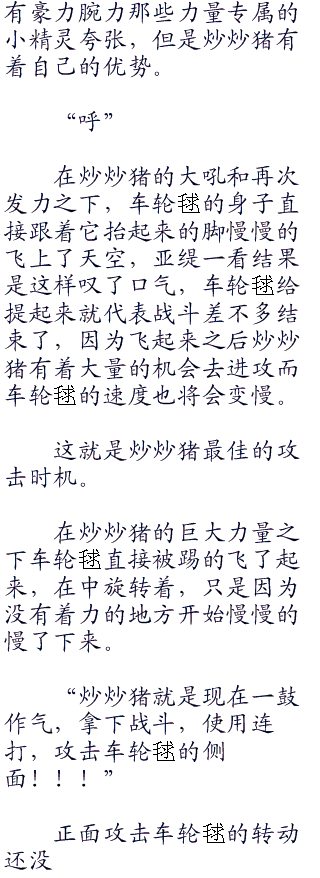 有豪力腕力那些力量专属的
小精灵夸张，但是炒炒猪有
着自己的优势。
“呼”
在炒炒猪的大吼和再次
发力之下，车轮毬的身子直
接跟着它抬起来的脚慢慢的
飞上了天空，亚缇一看结果
是这样叹了口气，车轮毬给
提起来就代表战斗差不多结
束了，因为飞起来之后炒炒
猪有着大量的机会去进攻而
车轮毬的速度也将会变慢。
这就是炒炒猪最佳的攻
击时机。
在炒炒猪的巨大力量之
下车轮毬直接被踢的飞了起
来，在中旋转着，只是因为
没有着力的地方开始慢慢的
慢了下来。
“炒炒猪就是现在一鼓
作气，拿下战斗，使用连
打，攻击车轮毬的侧
面！！！”
正面攻击车轮毬的转动
还没